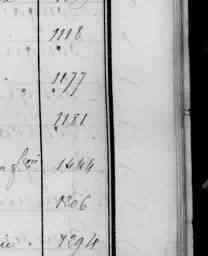 1118
1177
1181
1444
1206
1294